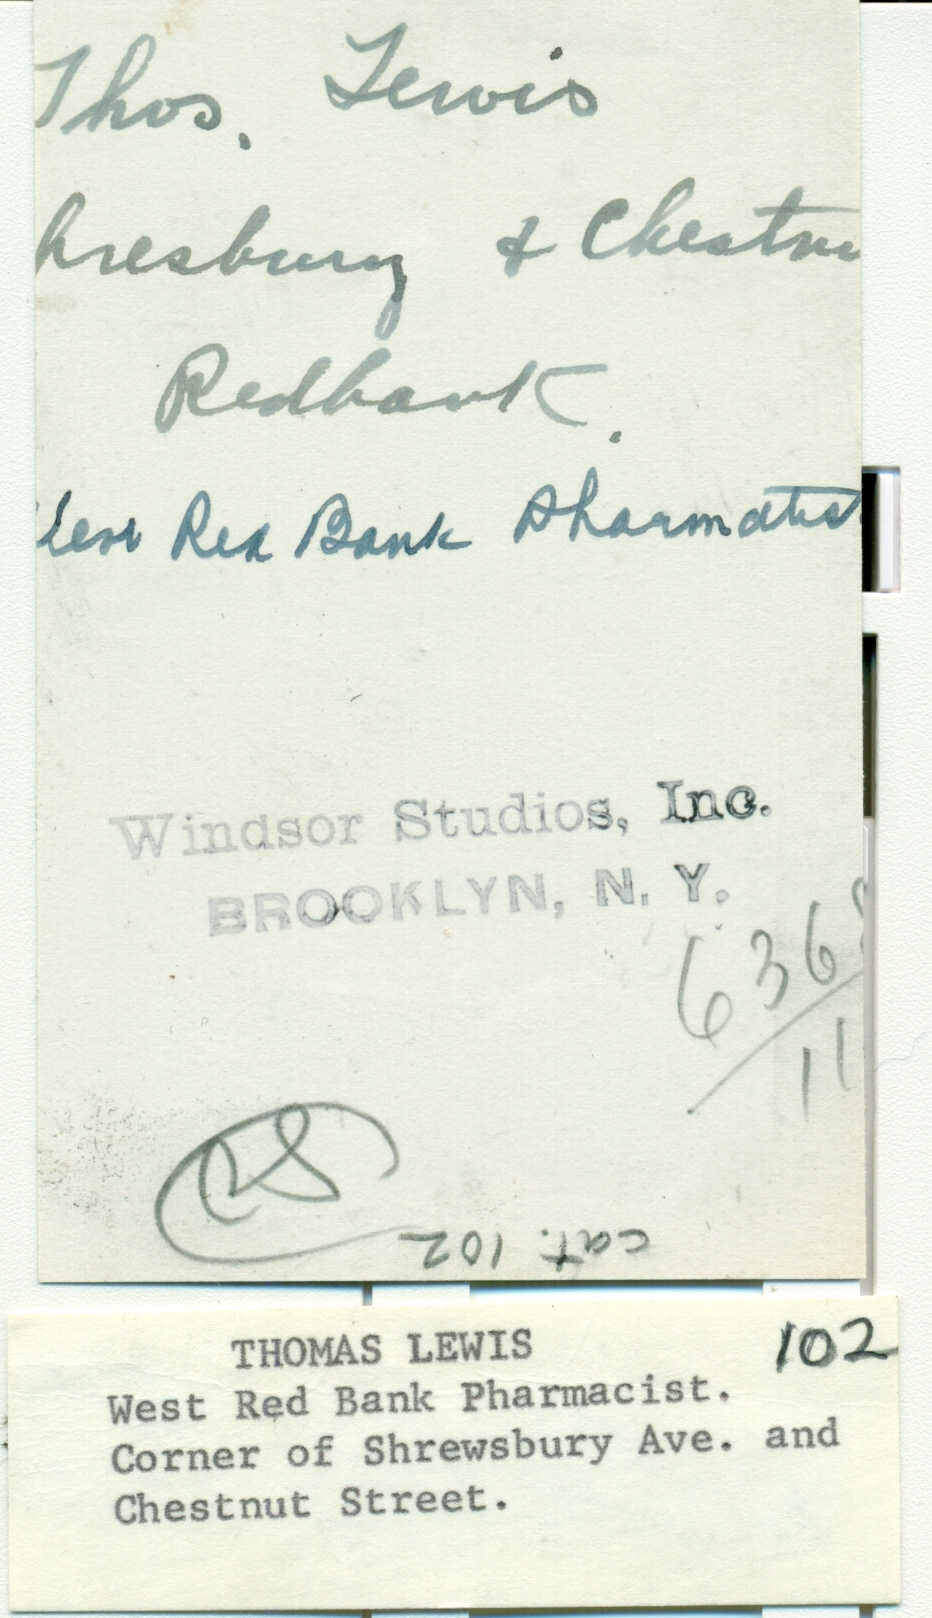 Thos. Lewis
hresbury & Chestnu
Redbank.
West Red Bank Pharmatist
Windsor Studios, Inc.
BROOKLYN, N. Y.
636
11
cat. 102
THOMAS LEWIS
102
West Red Bank Pharmacist.
Corner of Shrewsbury Ave. and
Chestnut Street.